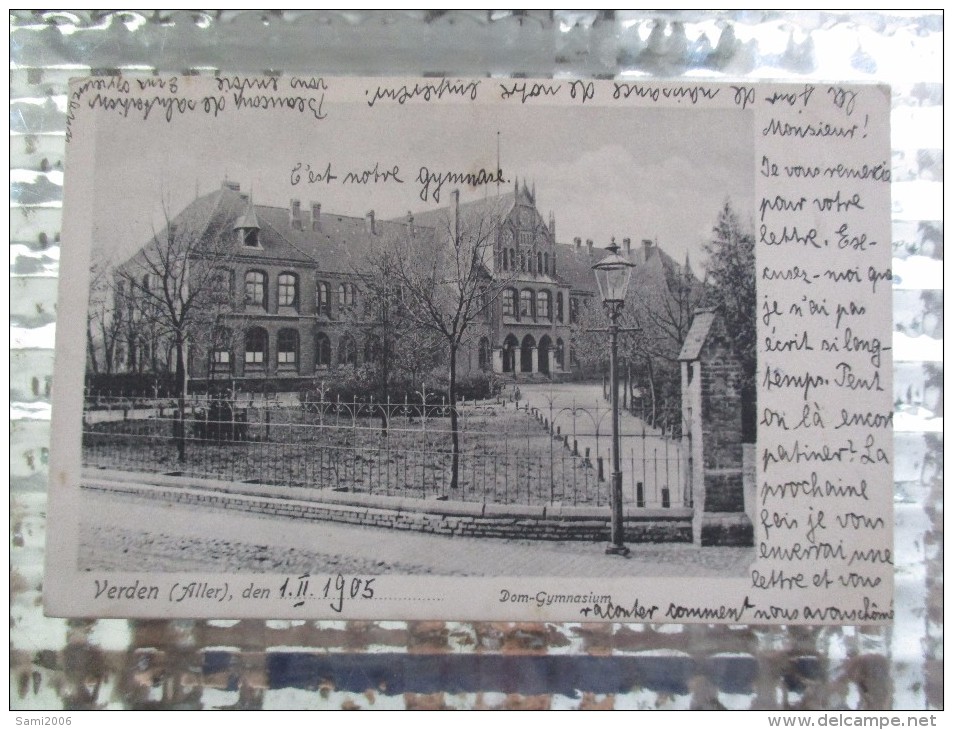 C'est notre gymnase.
Monsieur!
Je vous remercie
pour votre
lettre. Ex-
cusez-moi que
je n'ai pas
écrit si long-
temps. Peut
on là encor
patiner? La
prochaine
fois je vous
enverrai une
lettre et vous
raconter comment nous avons chômé
le jour de naissance de notre empereur.
Beaucoup de salutations
vous envoie
Verden (Aller), den 1. II. 1905
Dom-Gymnasium
Sami2006
www.delcampe.net